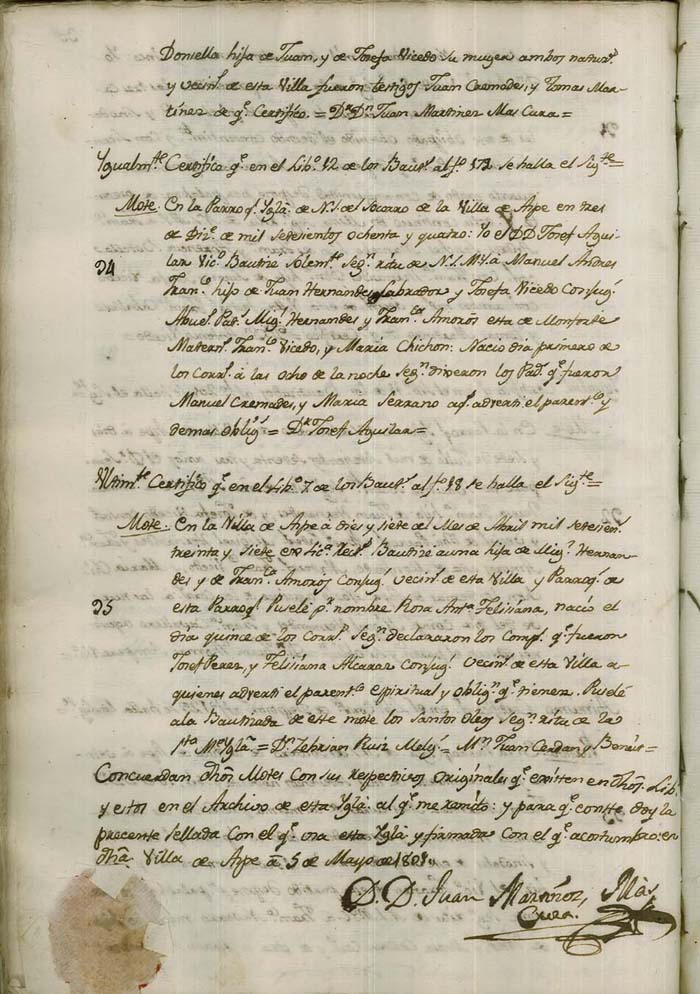 Donsella hija de Juan, y de Josefa Vicedo su muger ambos natur.s
y vecin.s de esta Villa fueron testigos Juan Cremades, y Tomas Mar-
tinez de q.e Certifico = D.r D.n Juan Martinez Mas Cura =
Ygualm.te Certifico q.e en el Lib.o 12 de los Baut.s al f.o 172 se halla el Sig.te =
Mote. En la Parroq.l Yglã. de N.S. del Socorro de la Villa de Aspe en tres
de Diz.e de mil setesientos ochenta y quatro: Yo el D.D. Josef Agui
34
lar Vic.o Bautisé Solem.te Seg.n ritu de N.S.M.Y. à Manuel Andres
Fran.co hijo de Juan Hernandes Labrador y Josefa Vicedo Conjug.s
Abuel.s Pat.s Mig.l Hernandes y Fran.ca Amorós esta de Monforte
Matern.s Fran.co Vicedo, y Maria Chichon: Nacio dia primero de
los Corr.s à las ocho de la noche Seg.n dixeron los Pad.s q.e fueron
Manuel Cremades, y Maria Serrano a q.s adverti el parent.co y
demas oblig.s = D.r Josef Aguilar =
Ultim.te Certifico q.e en el Lib.o 7 de los Baut.s al f.o 18 se halla el Sig.te =
Mote. En la Villa de Aspe à dies y siete del Mes de Abril mil setesien.s
treinta y siete
Bautisé a una hija de Mig.l Hernan-
des y de Fran.ca Amorós Conjug.s vecin.s de esta Villa y Parroq.s de
35
esta Parroq.l Puselé p.r nombre Rosa Ant.a Felisiana, nació el
dia quince de los Corr.s Seg.n declararon los Comp.s q.e fueron
Josef Perez, y Felisiana Alcaraz Conjug.s vecin.s de esta Villa a
quienes adverti el parent.co espiritual y oblig.n q.e tienen. Puselé
a la Bautisada de este mote los Santos Oleos Seg.n ritu de la
S.ta M.e Yglã = D.n Zebrian Ruiz Melg.s = M.n Juan Cerdan y Benéit =
Concuerdan dhos. Motes Con sus respectivos originales q.e existen en dhos. Lib.s
y estos en el Archivo de esta Yglã. al q.e me remito: y para q.e conste doy la
precente sellada Con el q.e usa esta Yglã y firmada Con el q.e acostumbro: en
dha. Villa de Aspe à 5 de Mayo de 1801.
D. D. Juan Martinez, Mas
Cura.